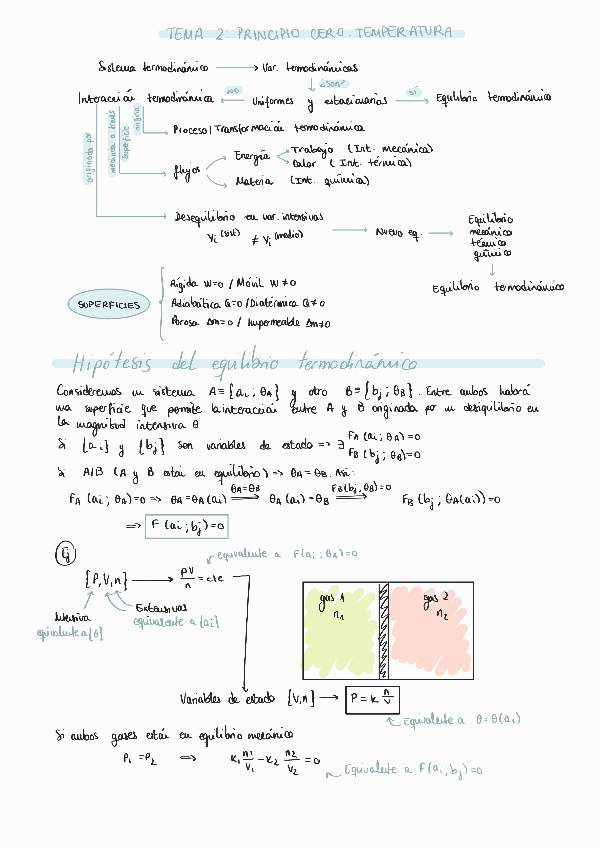 TEMA 2: PRINCIPIO CERO. TEMPERATURA
Sistema termodinámico → Var. termodinámicas
¿SON?
Interacción termodinámica ← NO Uniformes y estacionarias SÍ → Equilibrio termodinámico
originada por
mediada a través
superficie
origina
Proceso/Transformación termodinámica
flujos
Energía
Trabajo (Int. mecánica)
Calor (Int. térmica)
Materia (Int. química)
Desequilibrio en var. intensivas
Yi (sist) ≠ Yi (medio)
Nuevo eq.
Equilibrio
mecánico
térmico
químico
Equilibrio termodinámico
SUPERFICIES
Rígida W=0 / Móvil W≠0
Adiabática Q=0 / Diatérmica Q≠0
Porosa Δm=0 / Impermeable Δm≠0
Hipótesis del equilibrio termodinámico
Consideremos un sistema A≡{ai; θA} y otro B≡{bj; θB}. Entre ambos habrá
una superficie que permite la interacción entre A y B originada por un desequilibrio en
la magnitud intensiva θ
Si {ai} y {bj} son variables de estado => ∃ FA (ai; θA)=0
FB (bj; θB)=0
Si A/B (A y B están en equilibrio) => θA=θB. Así:
FA (ai; θA)=0 => θA=θA(ai) θA=θB => θA(ai)=θB FB(bj, θB)=0 => FB(bj; θA(ai))=0
=> F(ai; bj)=0
Ej
equivalente a F(ai; θA)=0
{P,V,n} → PV/n = cte
Intensiva
equivalente a {θ}
Extensivas
equivalente a {ai}
gas 1
n1
gas 2
n2
Variables de estado {V,n} → P = K n/V
Equivalente a θ=θ(ai)
Si ambos gases están en equilibrio mecánico
P1 = P2 => K1 n1/V1 - K2 n2/V2 = 0
Equivalente a F(ai; bj)=0